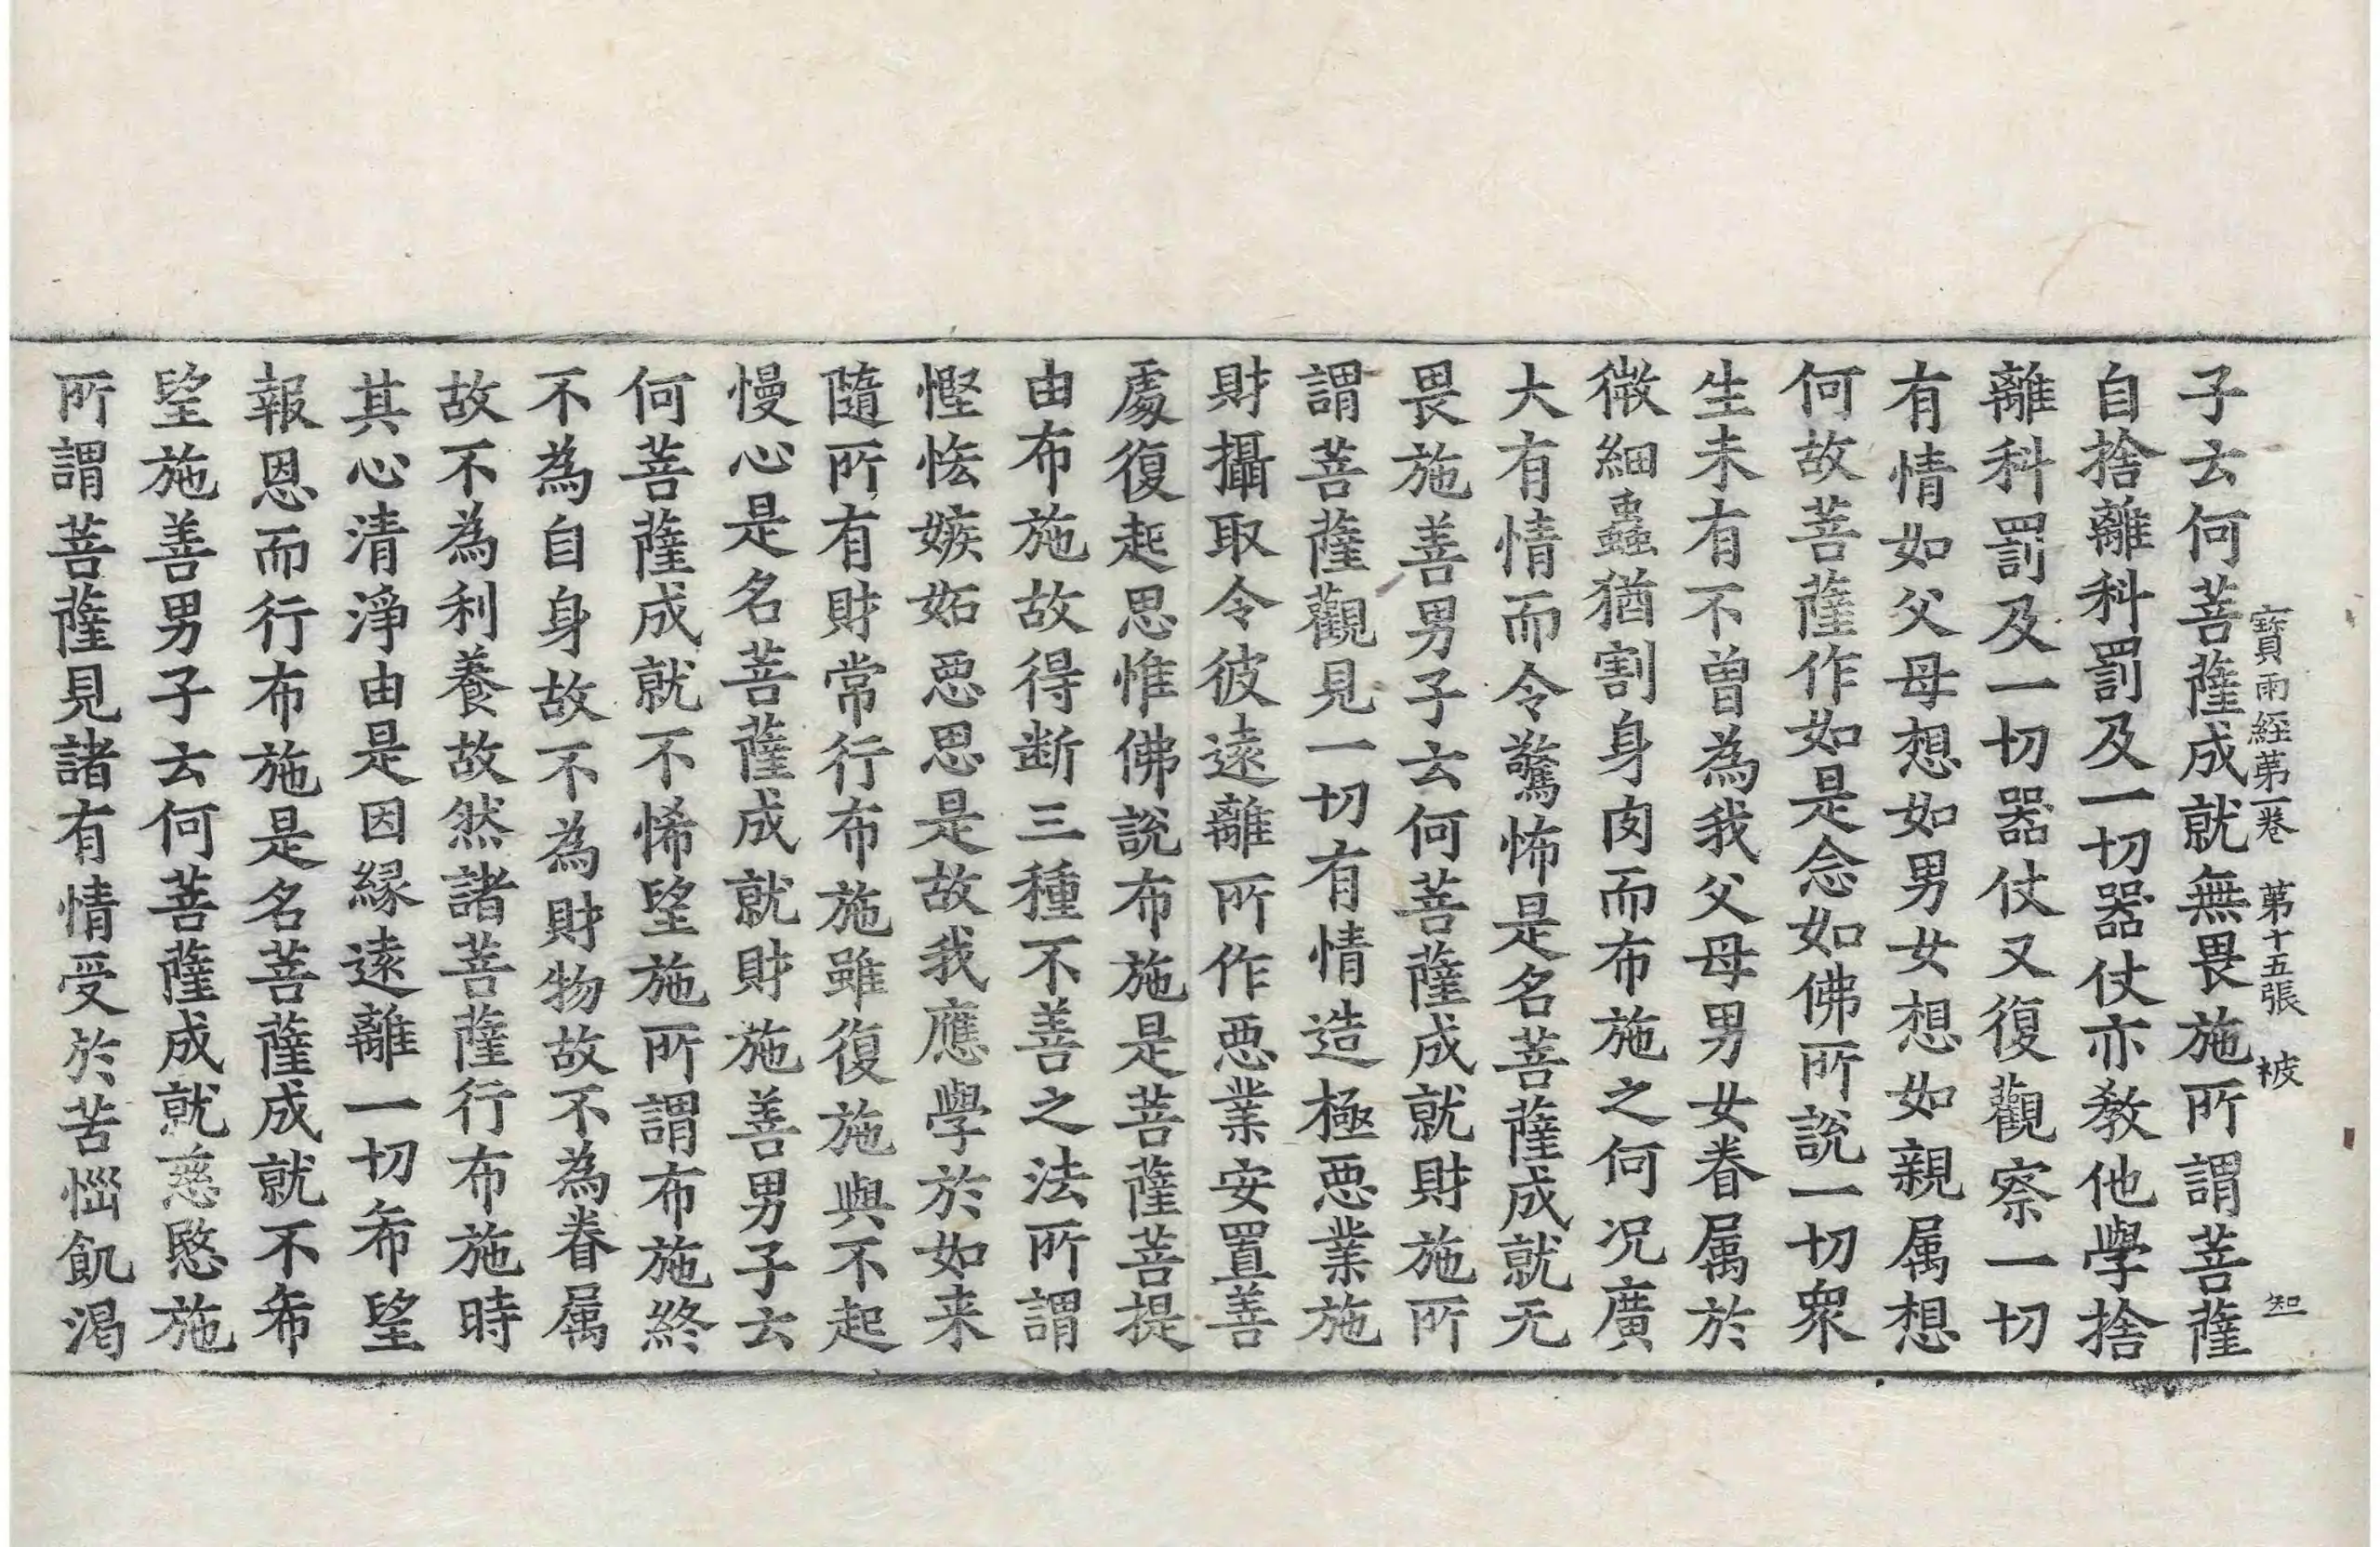 寶雨經第一卷　第十五張　被　知
子云何菩薩成就無畏施所謂菩薩
自捨離科罰及一切器仗亦教他學捨
離科罰及一切器仗又復觀察一切
有情如父母想如男女想如親属想
何故菩薩作如是念如佛所說一切衆
生未有不曽為我父母男女眷属於
微細蟲猶割身肉而布施之何况廣
大有情而令驚怖是名菩薩成就无
畏施善男子云何菩薩成就財施所
謂菩薩觀見一切有情造極惡業施
財攝取令彼遠離所作惡業安置善
處復起思惟佛說布施是菩薩菩提
由布施故得断三種不善之法所謂
慳恡嫉妬惡思是故我應學於如来
隨所有財常行布施雖復施與不起
慢心是名菩薩成就財施善男子云
何菩薩成就不悕望施所謂布施終
不為自身故不為財物故不為眷属
故不為利養故然諸菩薩行布施時
其心清淨由是因緣遠離一切希望
報恩而行布施是名菩薩成就不希
望施善男子云何菩薩成就慈愍施
所謂菩薩見諸有情受於苦惱飢渴